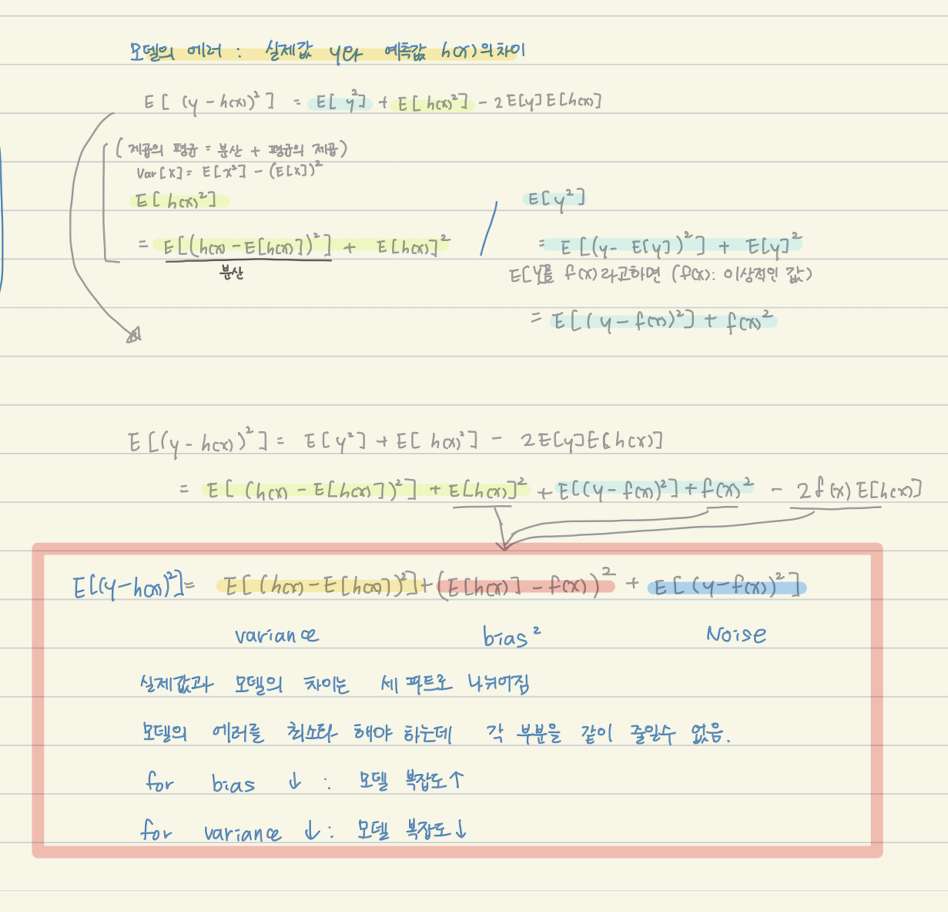 모델의 에러 : 실제값 y와 예측값 h(x)의 차이
E[ (y - h(x))²] = E[y²] + E[h(x)²] - 2E[y]E[h(x)]
( 제곱의 평균 = 분산 + 평균의 제곱)
Var[X] = E[x²] - (E[X])²
E[h(x)²]
= E[(h(x) - E[h(x)])²] + E[h(x)]²
분산
E[y²]
= E[(y - E[y])²] + E[y]²
E[y]를 f(x)라고하면 (f(x): 이상적인 값)
= E[(y - f(x))²] + f(x)²
E[(y - h(x))²] = E[y²] + E[h(x)²] - 2E[y]E[h(x)]
= E[(h(x) - E[h(x)])²] + E[h(x)]² + E[(y - f(x))²] + f(x)² - 2f(x)E[h(x)]
E[(y-h(x))²] = E[(h(x) - E[h(x)])²] + (E[h(x)] - f(x))² + E[(y-f(x))²]
variance bias² Noise
실제값과 모델의 차이는 세 파트로 나뉘어짐
모델의 에러를 최소화 해야 하는데 각 부분을 같이 줄일수 없음.
for bias ↓ : 모델 복잡도↑
for variance ↓ : 모델 복잡도↓